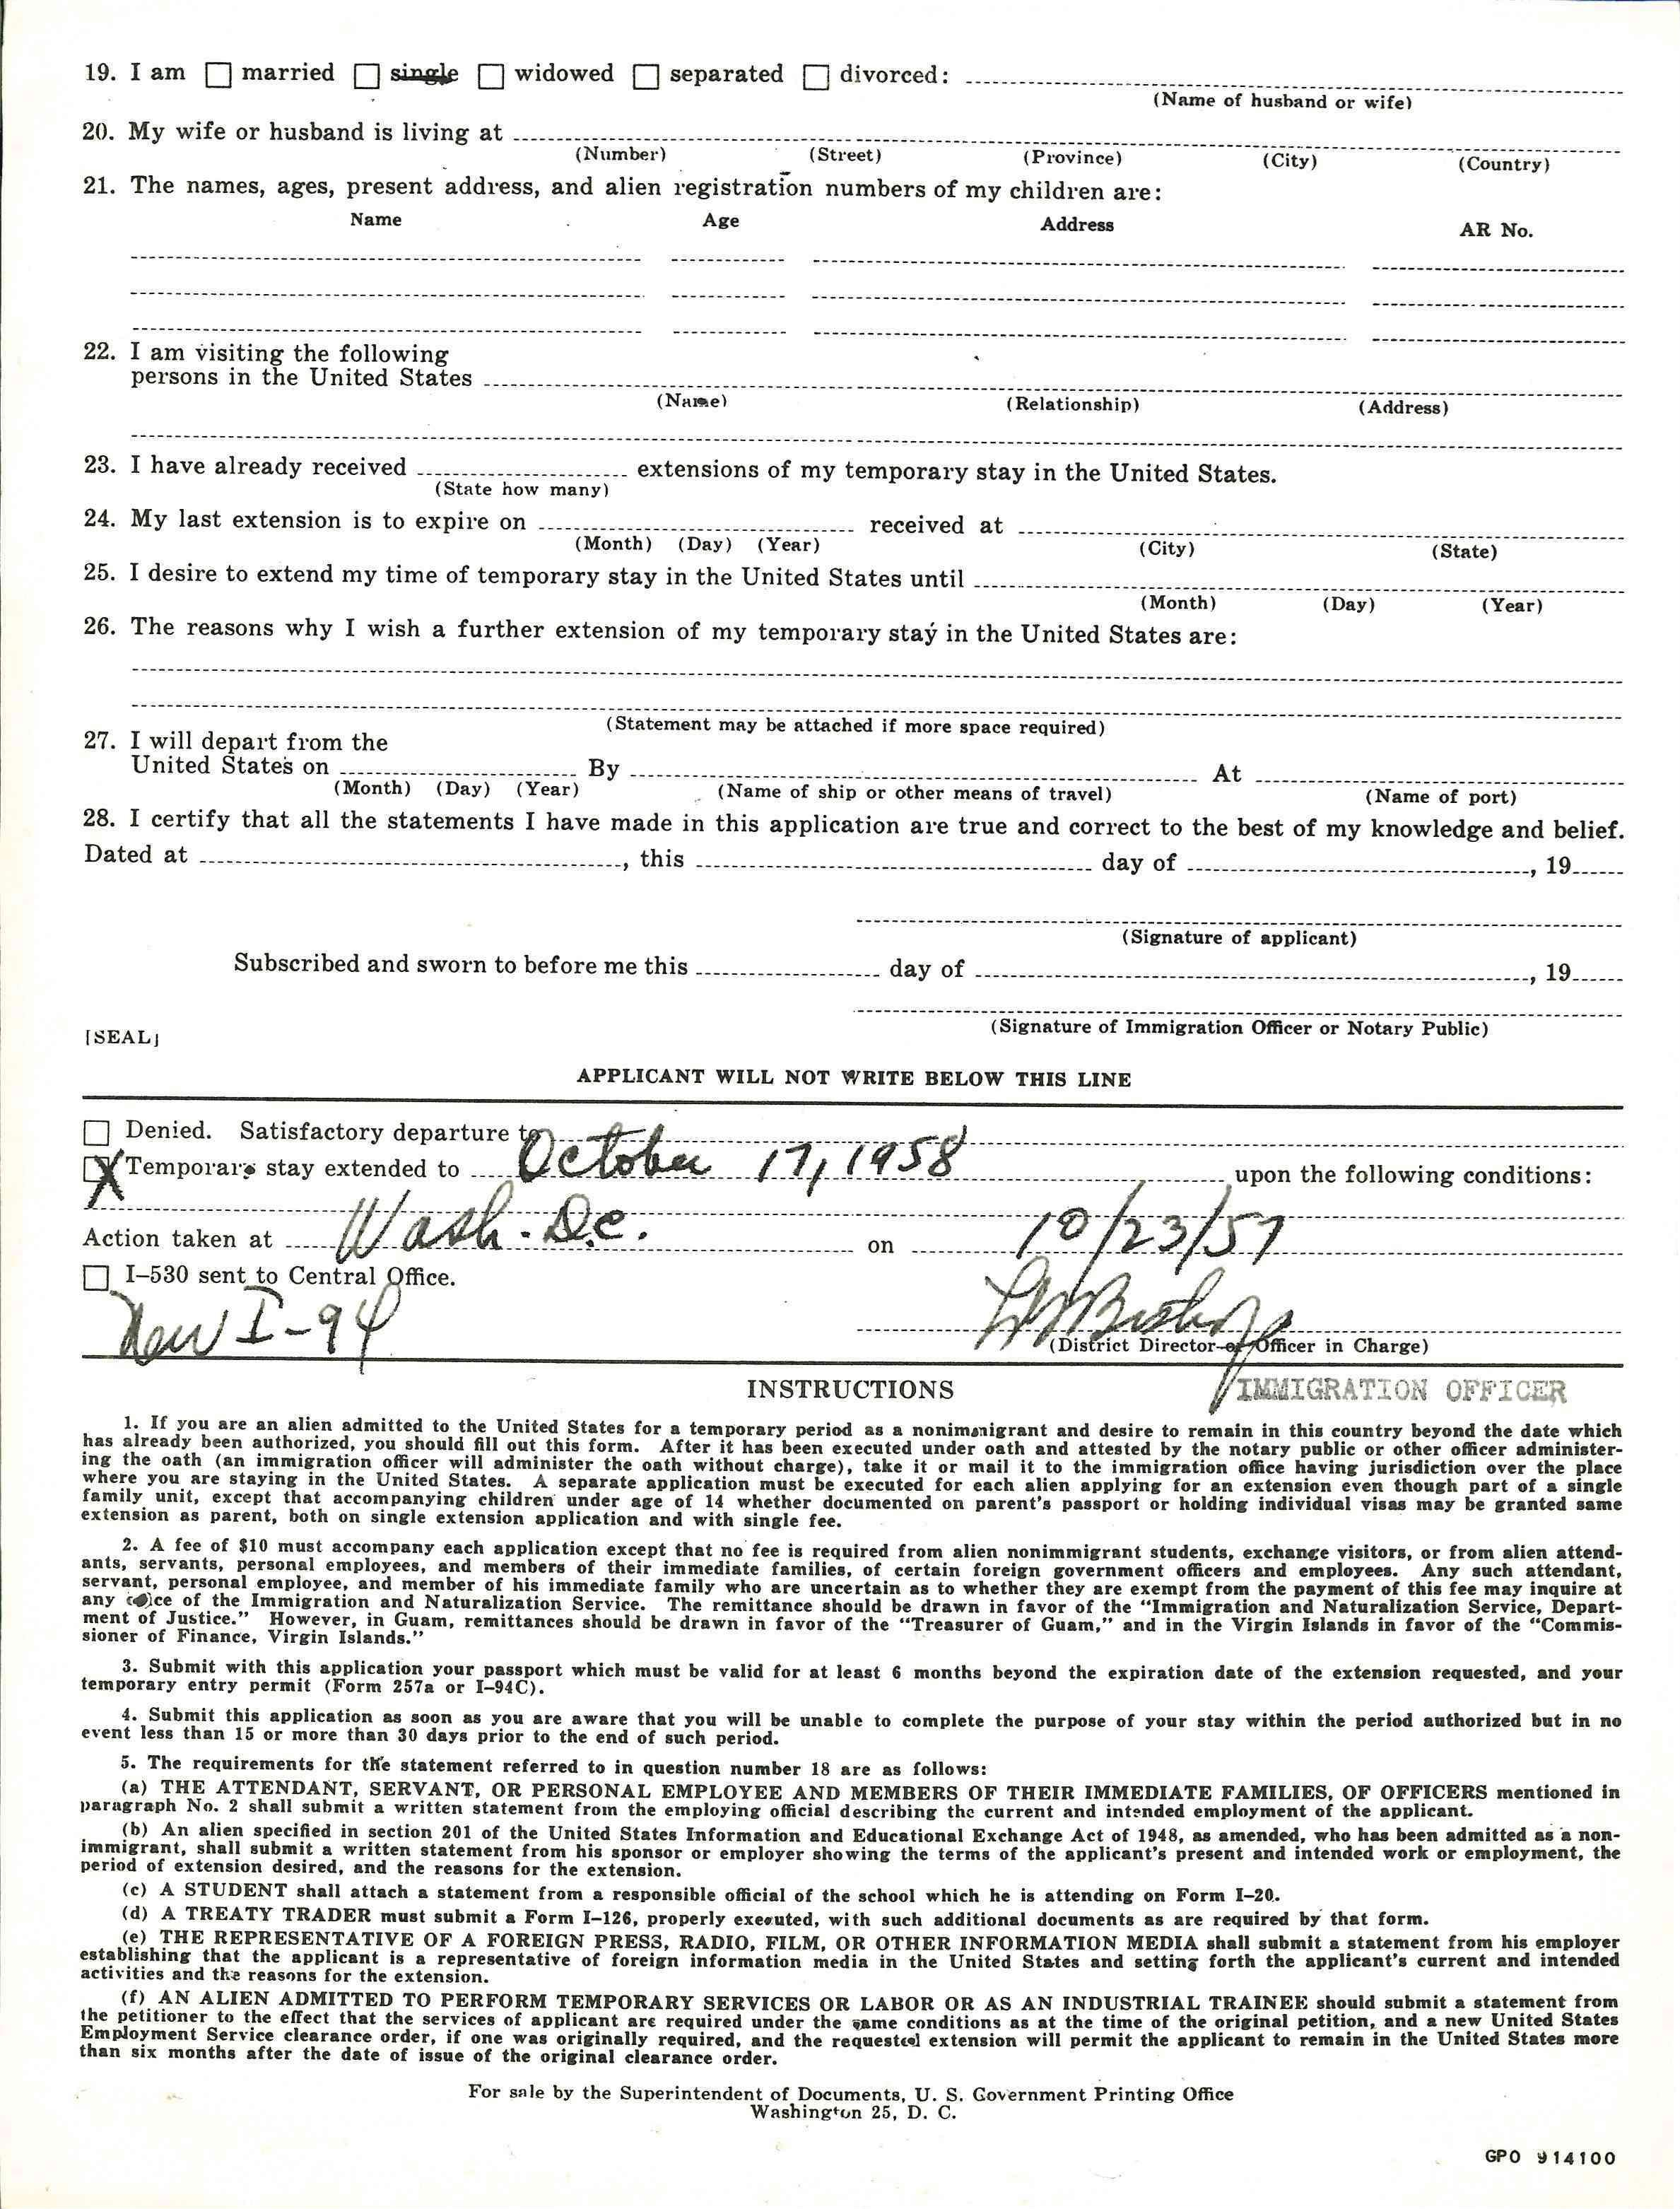 19. I am ☐ married ☐ single ☐ widowed ☐ separated ☐ divorced:
(Name of husband or wife)
20. My wife or husband is living at
(Number) (Street) (Province) (City) (Country)
21. The names, ages, present address, and alien registration numbers of my children are:
Name Age Address AR No.
22. I am visiting the following
persons in the United States
(Name) (Relationship) (Address)
23. I have already received extensions of my temporary stay in the United States.
(State how many)
24. My last extension is to expire on received at
(Month) (Day) (Year) (City) (State)
25. I desire to extend my time of temporary stay in the United States until
(Month) (Day) (Year)
26. The reasons why I wish a further extension of my temporary stay in the United States are:
(Statement may be attached if more space required)
27. I will depart from the
United States on By At
(Month) (Day) (Year) (Name of ship or other means of travel) (Name of port)
28. I certify that all the statements I have made in this application are true and correct to the best of my knowledge and belief.
Dated at , this day of , 19
(Signature of applicant)
Subscribed and sworn to before me this day of , 19
(Signature of Immigration Officer or Notary Public)
[SEAL]
APPLICANT WILL NOT WRITE BELOW THIS LINE
☐ Denied. Satisfactory departure to
☒ Temporary stay extended to October 17, 1958 upon the following conditions:
Action taken at Wash. D.C. on 10/23/57
☐ I–530 sent to Central Office.
New I-94
(District Director or Officer in Charge)
IMMIGRATION OFFICER
INSTRUCTIONS
1. If you are an alien admitted to the United States for a temporary period as a nonimmigrant and desire to remain in this country beyond the date which
has already been authorized, you should fill out this form. After it has been executed under oath and attested by the notary public or other officer administer-
ing the oath (an immigration officer will administer the oath without charge), take it or mail it to the immigration office having jurisdiction over the place
where you are staying in the United States. A separate application must be executed for each alien applying for an extension even though part of a single
family unit, except that accompanying children under age of 14 whether documented on parent's passport or holding individual visas may be granted same
extension as parent, both on single extension application and with single fee.
2. A fee of $10 must accompany each application except that no fee is required from alien nonimmigrant students, exchange visitors, or from alien attend-
ants, servants, personal employees, and members of their immediate families, of certain foreign government officers and employees. Any such attendant,
servant, personal employee, and member of his immediate family who are uncertain as to whether they are exempt from the payment of this fee may inquire at
any office of the Immigration and Naturalization Service. The remittance should be drawn in favor of the "Immigration and Naturalization Service, Depart-
ment of Justice." However, in Guam, remittances should be drawn in favor of the "Treasurer of Guam," and in the Virgin Islands in favor of the "Commis-
sioner of Finance, Virgin Islands."
3. Submit with this application your passport which must be valid for at least 6 months beyond the expiration date of the extension requested, and your
temporary entry permit (Form 257a or I–94C).
4. Submit this application as soon as you are aware that you will be unable to complete the purpose of your stay within the period authorized but in no
event less than 15 or more than 30 days prior to the end of such period.
5. The requirements for the statement referred to in question number 18 are as follows:
(a) THE ATTENDANT, SERVANT, OR PERSONAL EMPLOYEE AND MEMBERS OF THEIR IMMEDIATE FAMILIES, OF OFFICERS mentioned in
paragraph No. 2 shall submit a written statement from the employing official describing the current and intended employment of the applicant.
(b) An alien specified in section 201 of the United States Information and Educational Exchange Act of 1948, as amended, who has been admitted as a non-
immigrant, shall submit a written statement from his sponsor or employer showing the terms of the applicant's present and intended work or employment, the
period of extension desired, and the reasons for the extension.
(c) A STUDENT shall attach a statement from a responsible official of the school which he is attending on Form I–20.
(d) A TREATY TRADER must submit a Form I–126, properly executed, with such additional documents as are required by that form.
(e) THE REPRESENTATIVE OF A FOREIGN PRESS, RADIO, FILM, OR OTHER INFORMATION MEDIA shall submit a statement from his employer
establishing that the applicant is a representative of foreign information media in the United States and setting forth the applicant's current and intended
activities and the reasons for the extension.
(f) AN ALIEN ADMITTED TO PERFORM TEMPORARY SERVICES OR LABOR OR AS AN INDUSTRIAL TRAINEE should submit a statement from
the petitioner to the effect that the services of applicant are required under the same conditions as at the time of the original petition, and a new United States
Employment Service clearance order, if one was originally required, and the requested extension will permit the applicant to remain in the United States more
than six months after the date of issue of the original clearance order.
For sale by the Superintendent of Documents, U. S. Government Printing Office
Washington 25, D. C.
GPO 914100